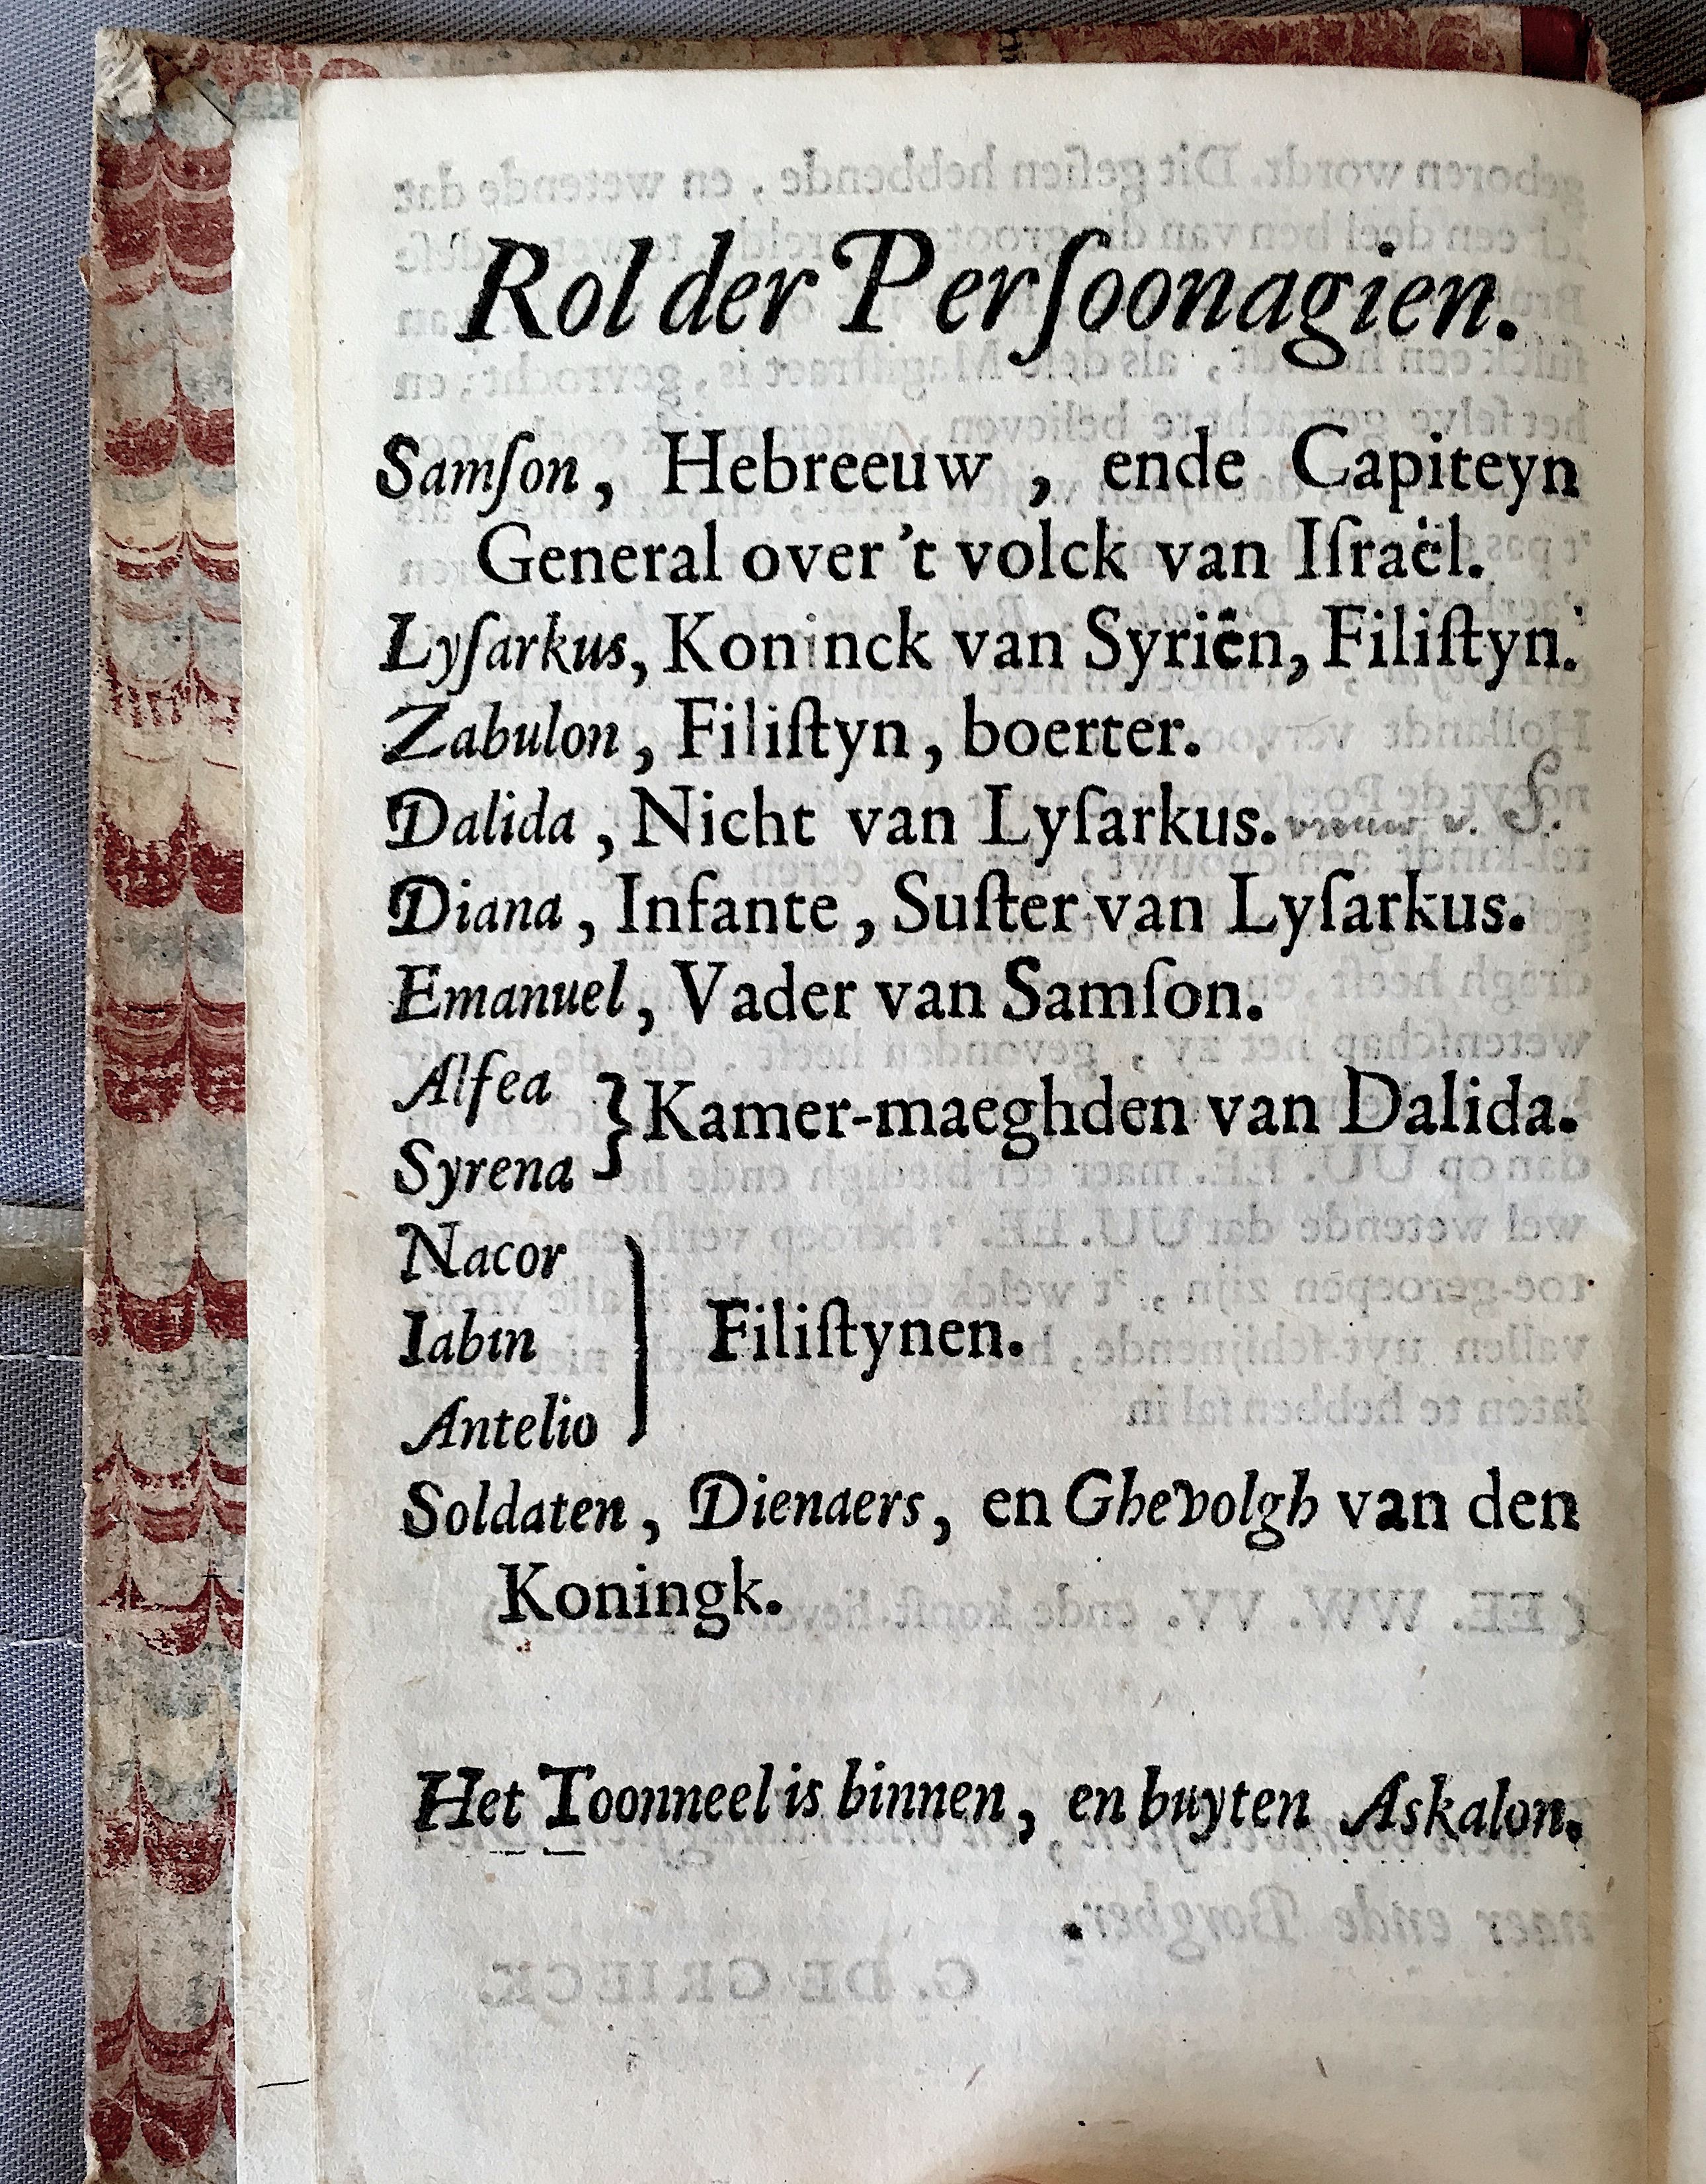 Rol der Perſoonagien.
Samſon, Hebreeuw, ende Capiteyn
General over 't volck van Iſraël.
Lyſarkus, Koninck van Syriën, Filiſtyn.
Zabulon, Filiſtyn, boerter.
Dalida, Nicht van Lyſarkus. vrouw v. S.
Diana, Infante, Suſter van Lyſarkus.
Emanuel, Vader van Samſon.
Alfea
} Kamer-maeghden van Dalida.
Syrena
Nacor
Iabin } Filiſtynen.
Antelio
Soldaten, Dienaers, en Ghevolgh van den
Koningk.
Het Toonneel is binnen, en buyten Askalon.